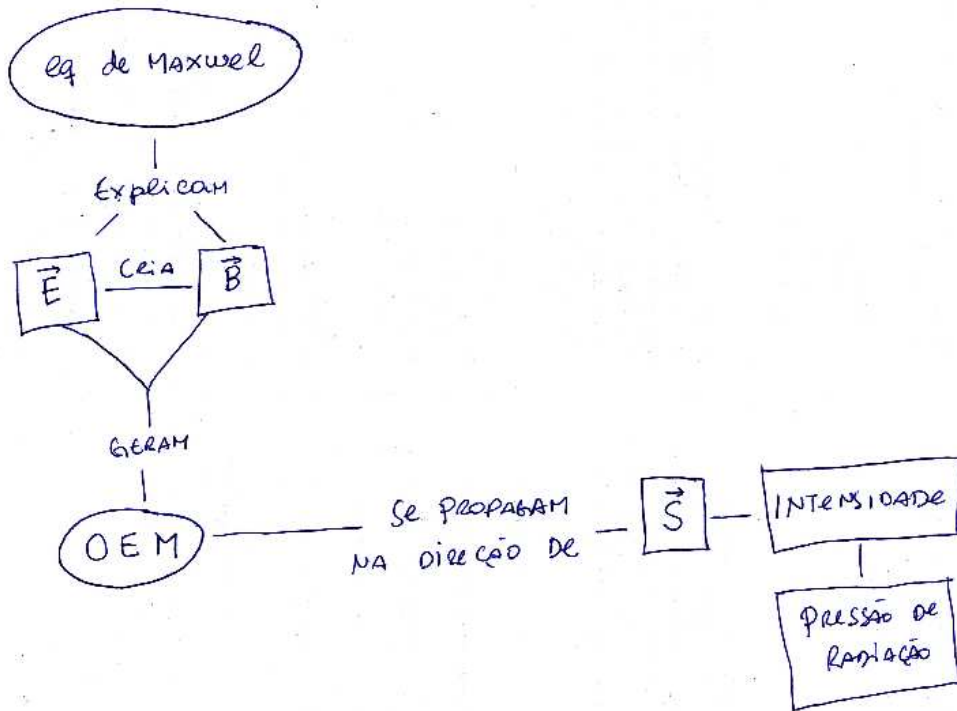 eq de MAXWel
Explicam
E CRiA B
GERAM
OEM
Se PROPAGAM
NA DIREÇÃO De
S
INTENSIDADe
PRESSÃO De
RADIAÇÃO